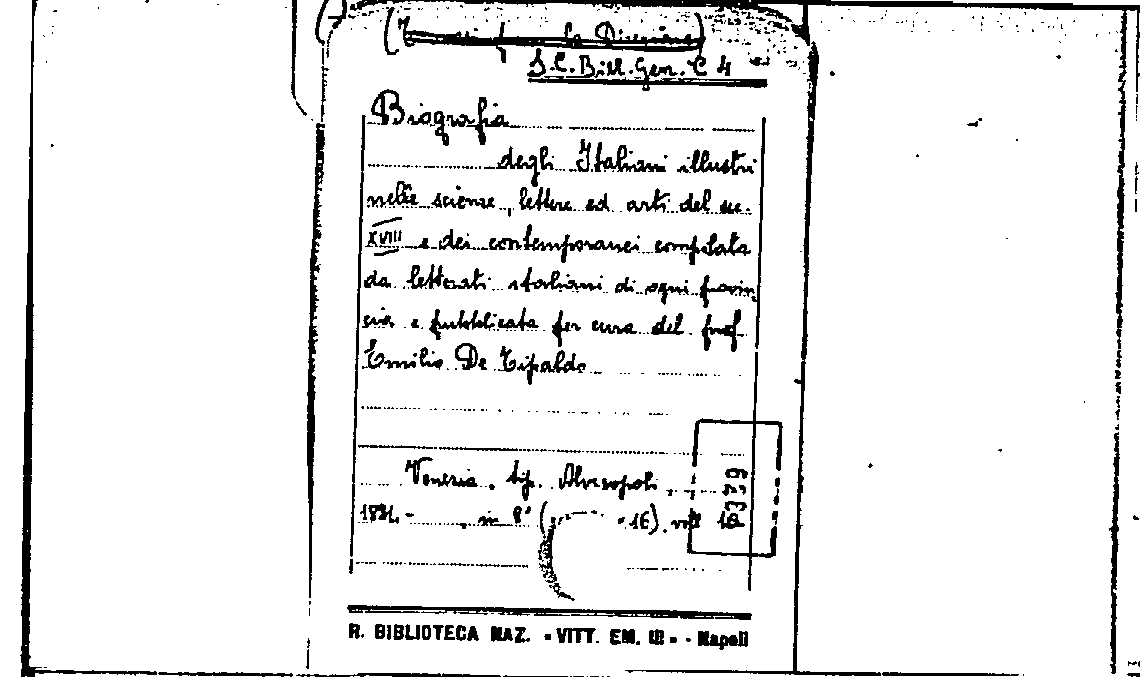 la Direzione)
S.C. Bibl. Gen. C 4
Biografia
degli Italiani illustri
nelle scienze, lettere ed arti del sec.
XVIII e dei contemporanei compilata
da letterati italiani di ogni provin
cia e pubblicata per cura del prof
Emilio De Tipaldo
Venezia. tip. Alvisopoli
1834.- , in 8° ( 16). voll 10
R. BIBLIOTECA NAZ. - VITT. EM. III - - Napoli